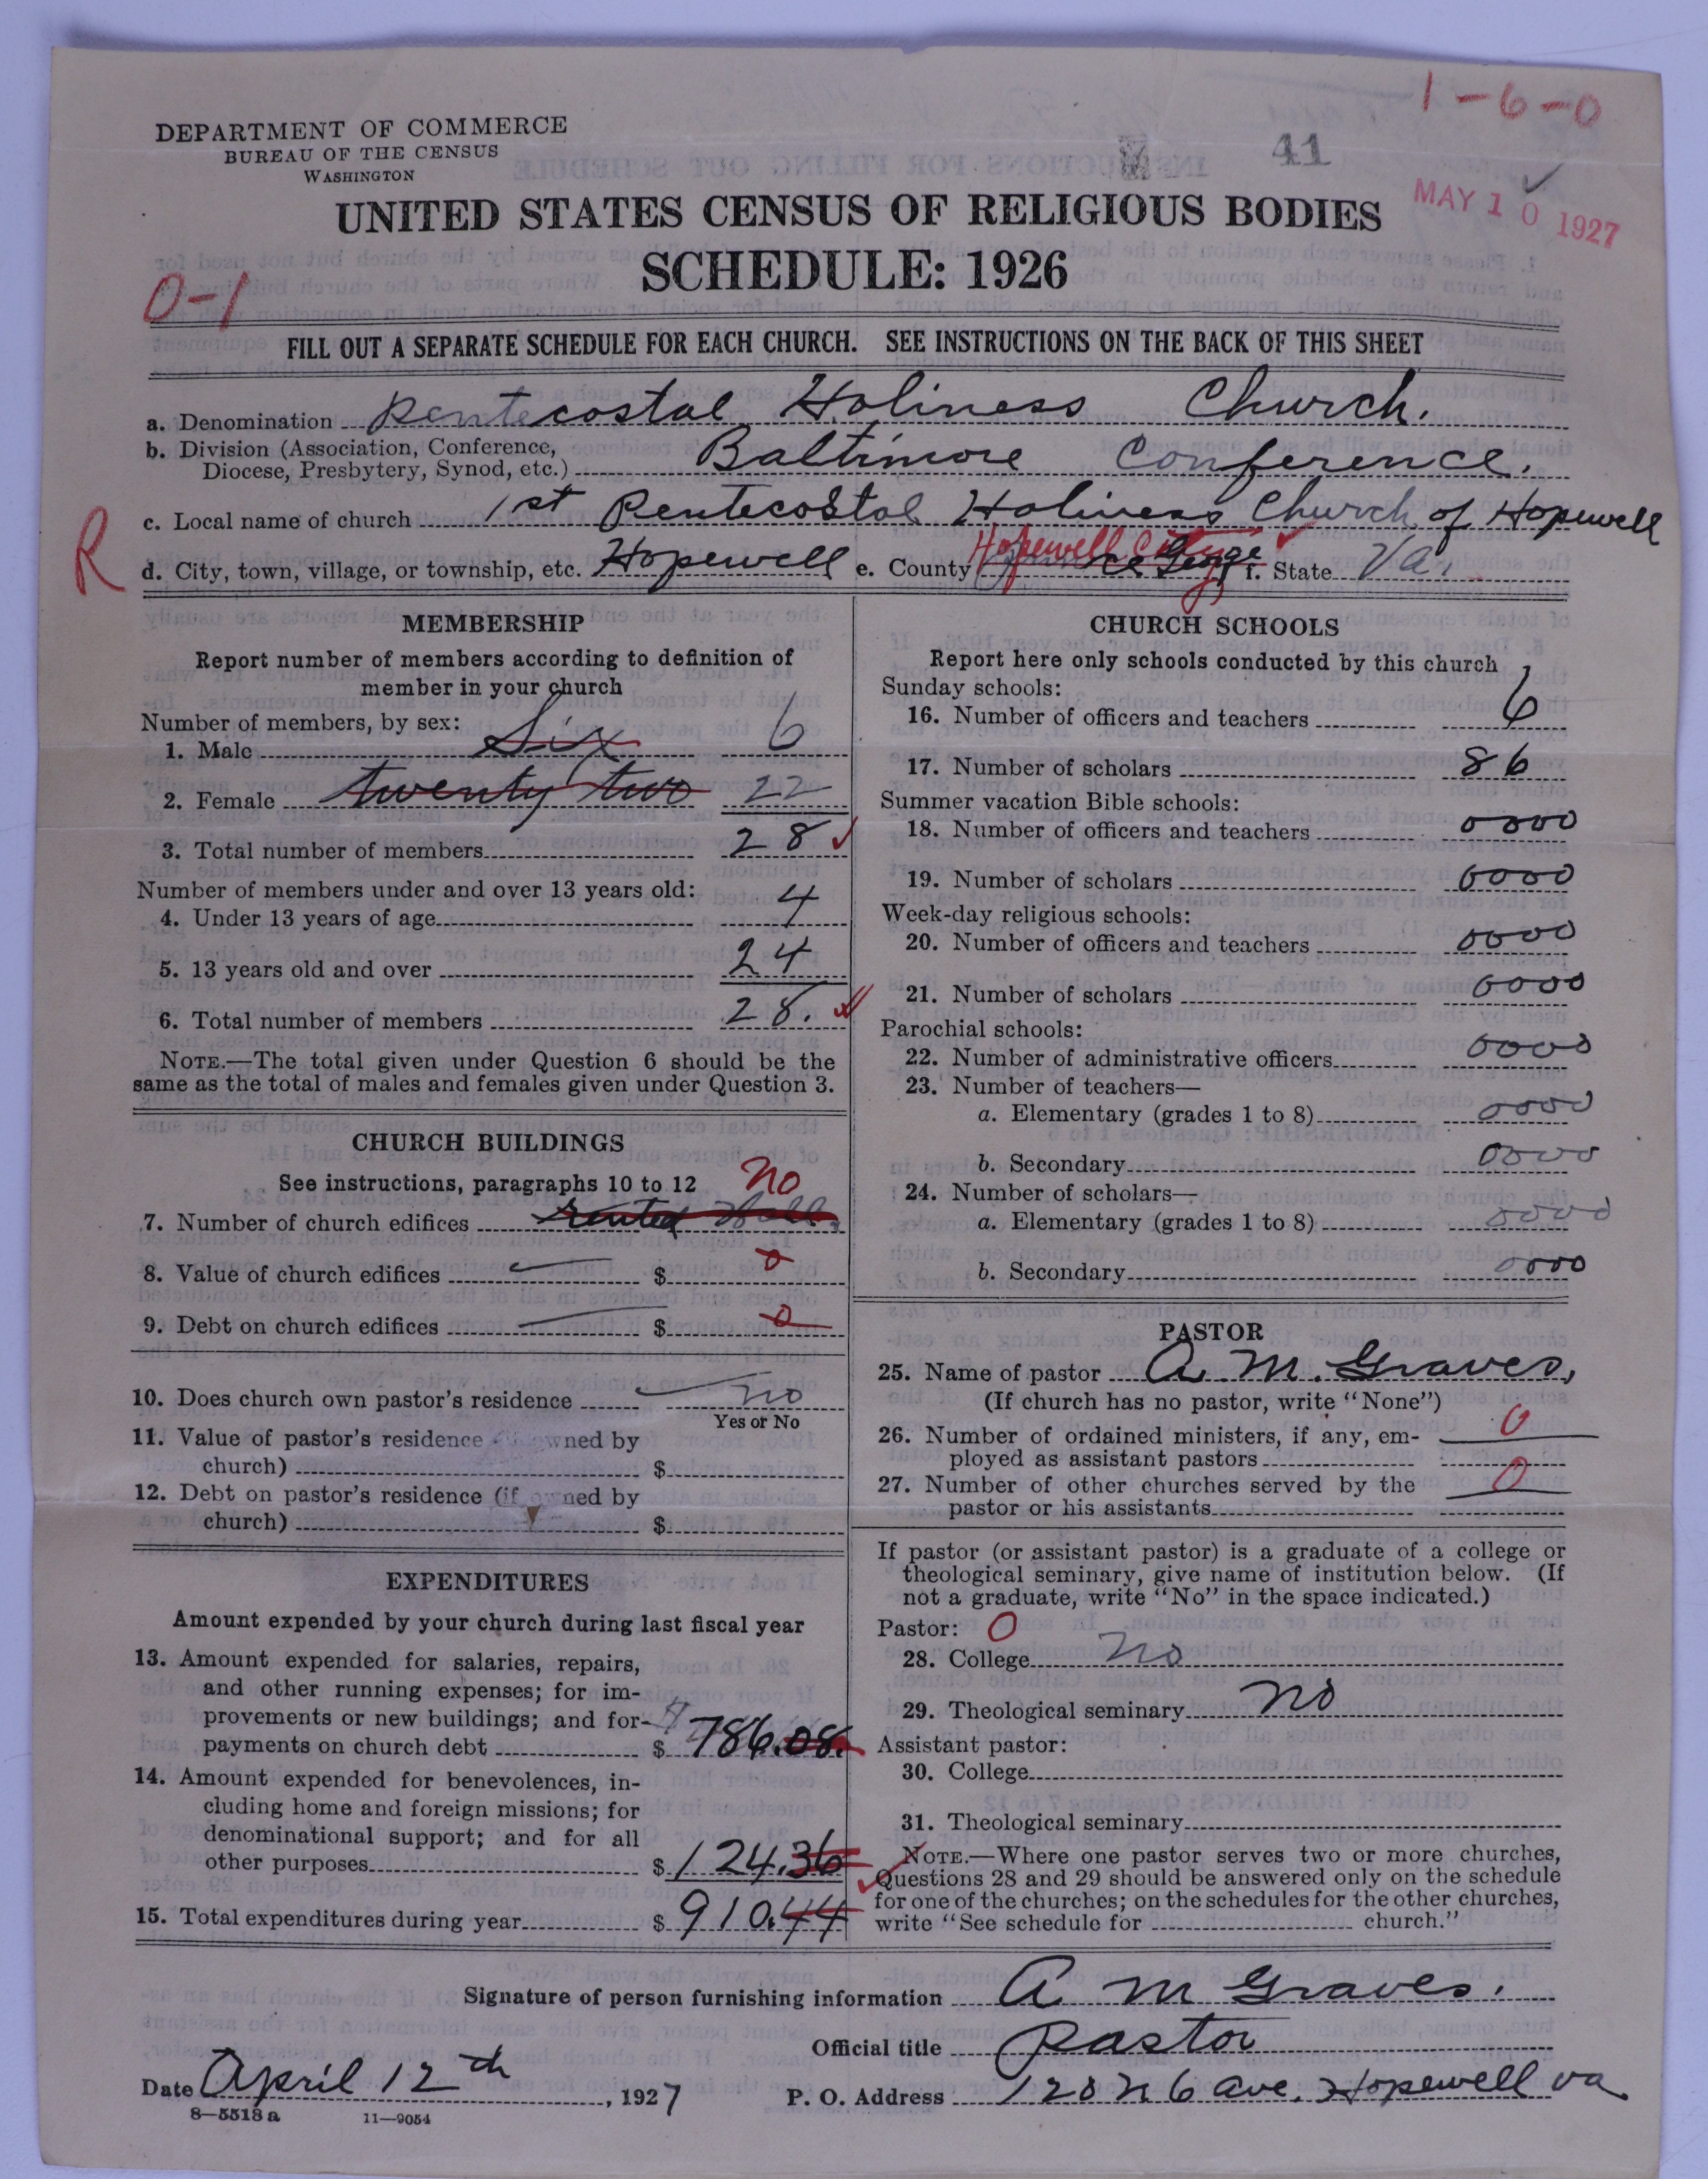 1-6-0
41
MAY 10 1927
DEPARTMENT OF COMMERCE
BUREAU OF THE CENSUS
WASHINGTON
UNITED STATES CENSUS OF RELIGIOUS BODIES
SCHEDULE: 1926
0-1
FILL OUT A SEPARATE SCHEDULE FOR EACH CHURCH. SEE INSTRUCTIONS ON THE BACK OF THIS SHEET
a. Denomination Pentecostal Holiness Church.
b. Division (Association, Conference,
Diocese, Presbytery, Synod, etc.) Baltimore Conference.
c. Local name of church 1st Pentecostal Holiness Church of Hopewell
R
d. City, town, village, or township, etc. Hopewell e. County Hopewell City George f. State Va.
MEMBERSHIP
Report number of members according to definition of
member in your church
Number of members, by sex:
1. Male Six 6
2. Female twenty two 22
3. Total number of members 28
Number of members under and over 13 years old:
4. Under 13 years of age 4
5. 13 years old and over 24
6. Total number of members 28.
NOTE.—The total given under Question 6 should be the
same as the total of males and females given under Question 3.
CHURCH BUILDINGS
See instructions, paragraphs 10 to 12 no
7. Number of church edifices rented Hall.
8. Value of church edifices $ 0
9. Debt on church edifices $ 0
10. Does church own pastor's residence no
Yes or No
11. Value of pastor's residence wned by
church) $
12. Debt on pastor's residence (if owned by
church) $
EXPENDITURES
Amount expended by your church during last fiscal year
13. Amount expended for salaries, repairs,
and other running expenses; for im-
provements or new buildings; and for
payments on church debt $ 786.08.
14. Amount expended for benevolences, in-
cluding home and foreign missions; for
denominational support; and for all
other purposes $ 124.36
15. Total expenditures during year $ 910.44
CHURCH SCHOOLS
Report here only schools conducted by this church
Sunday schools:
16. Number of officers and teachers 6
17. Number of scholars 86
Summer vacation Bible schools:
18. Number of officers and teachers 0000
19. Number of scholars 0000
Week-day religious schools:
20. Number of officers and teachers 0000
21. Number of scholars 0000
Parochial schools:
22. Number of administrative officers 0000
23. Number of teachers—
a. Elementary (grades 1 to 8) 0000
b. Secondary 0000
24. Number of scholars—
a. Elementary (grades 1 to 8) 0000
b. Secondary 0000
PASTOR
25. Name of pastor A. M. Graves,
(If church has no pastor, write "None")
26. Number of ordained ministers, if any, em-
ployed as assistant pastors 0
27. Number of other churches served by the
pastor or his assistants 0
If pastor (or assistant pastor) is a graduate of a college or
theological seminary, give name of institution below. (If
not a graduate, write "No" in the space indicated.)
Pastor: 0
28. College no
29. Theological seminary no
Assistant pastor:
30. College
31. Theological seminary
NOTE.—Where one pastor serves two or more churches,
Questions 28 and 29 should be answered only on the schedule
for one of the churches; on the schedules for the other churches,
write "See schedule for church."
Signature of person furnishing information A M Graves.
Official title Pastor
Date April 12th, 1927 P. O. Address 120 N 6 ave. Hopewell va
8—5518a 11—9054